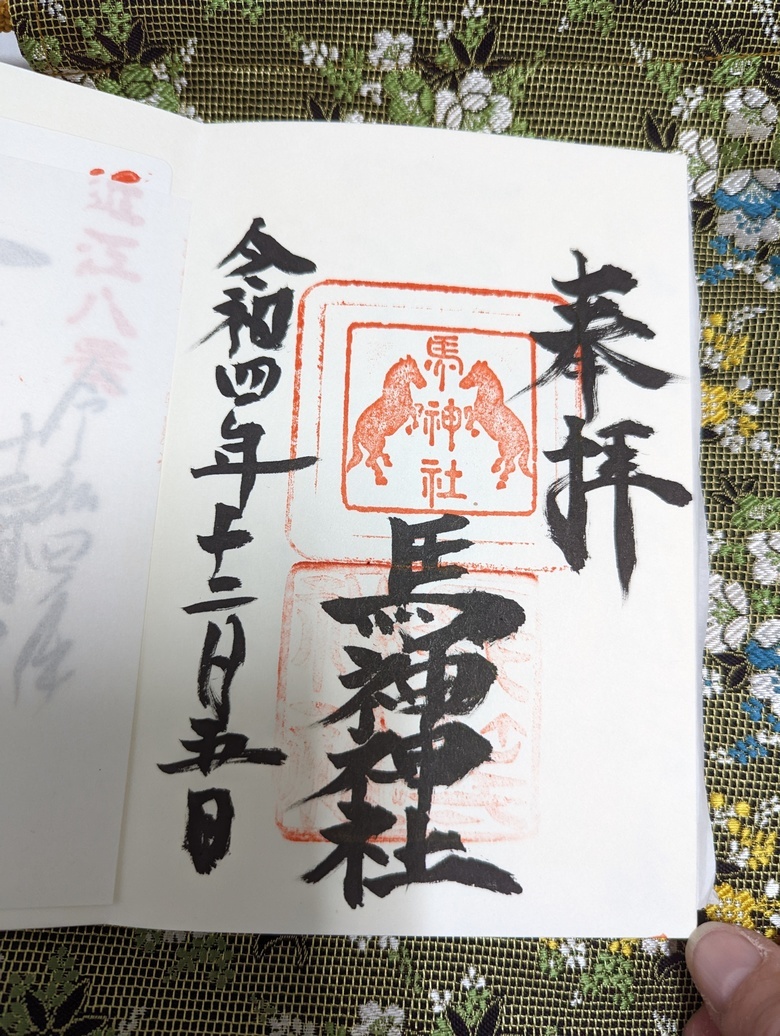 奉拝
馬神社
馬神神社
令和四年十二月五日
近江八景